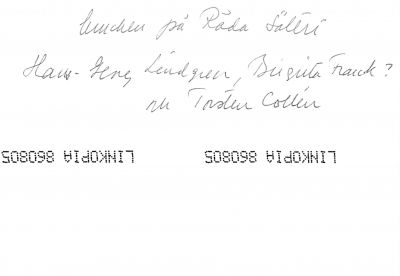 lunchen på Råda Säteri
Hans-Georg Lindgren, Birgitta Franck?
och Torsten Collén
LINKOPIA 860805 LINKOPIA 860805